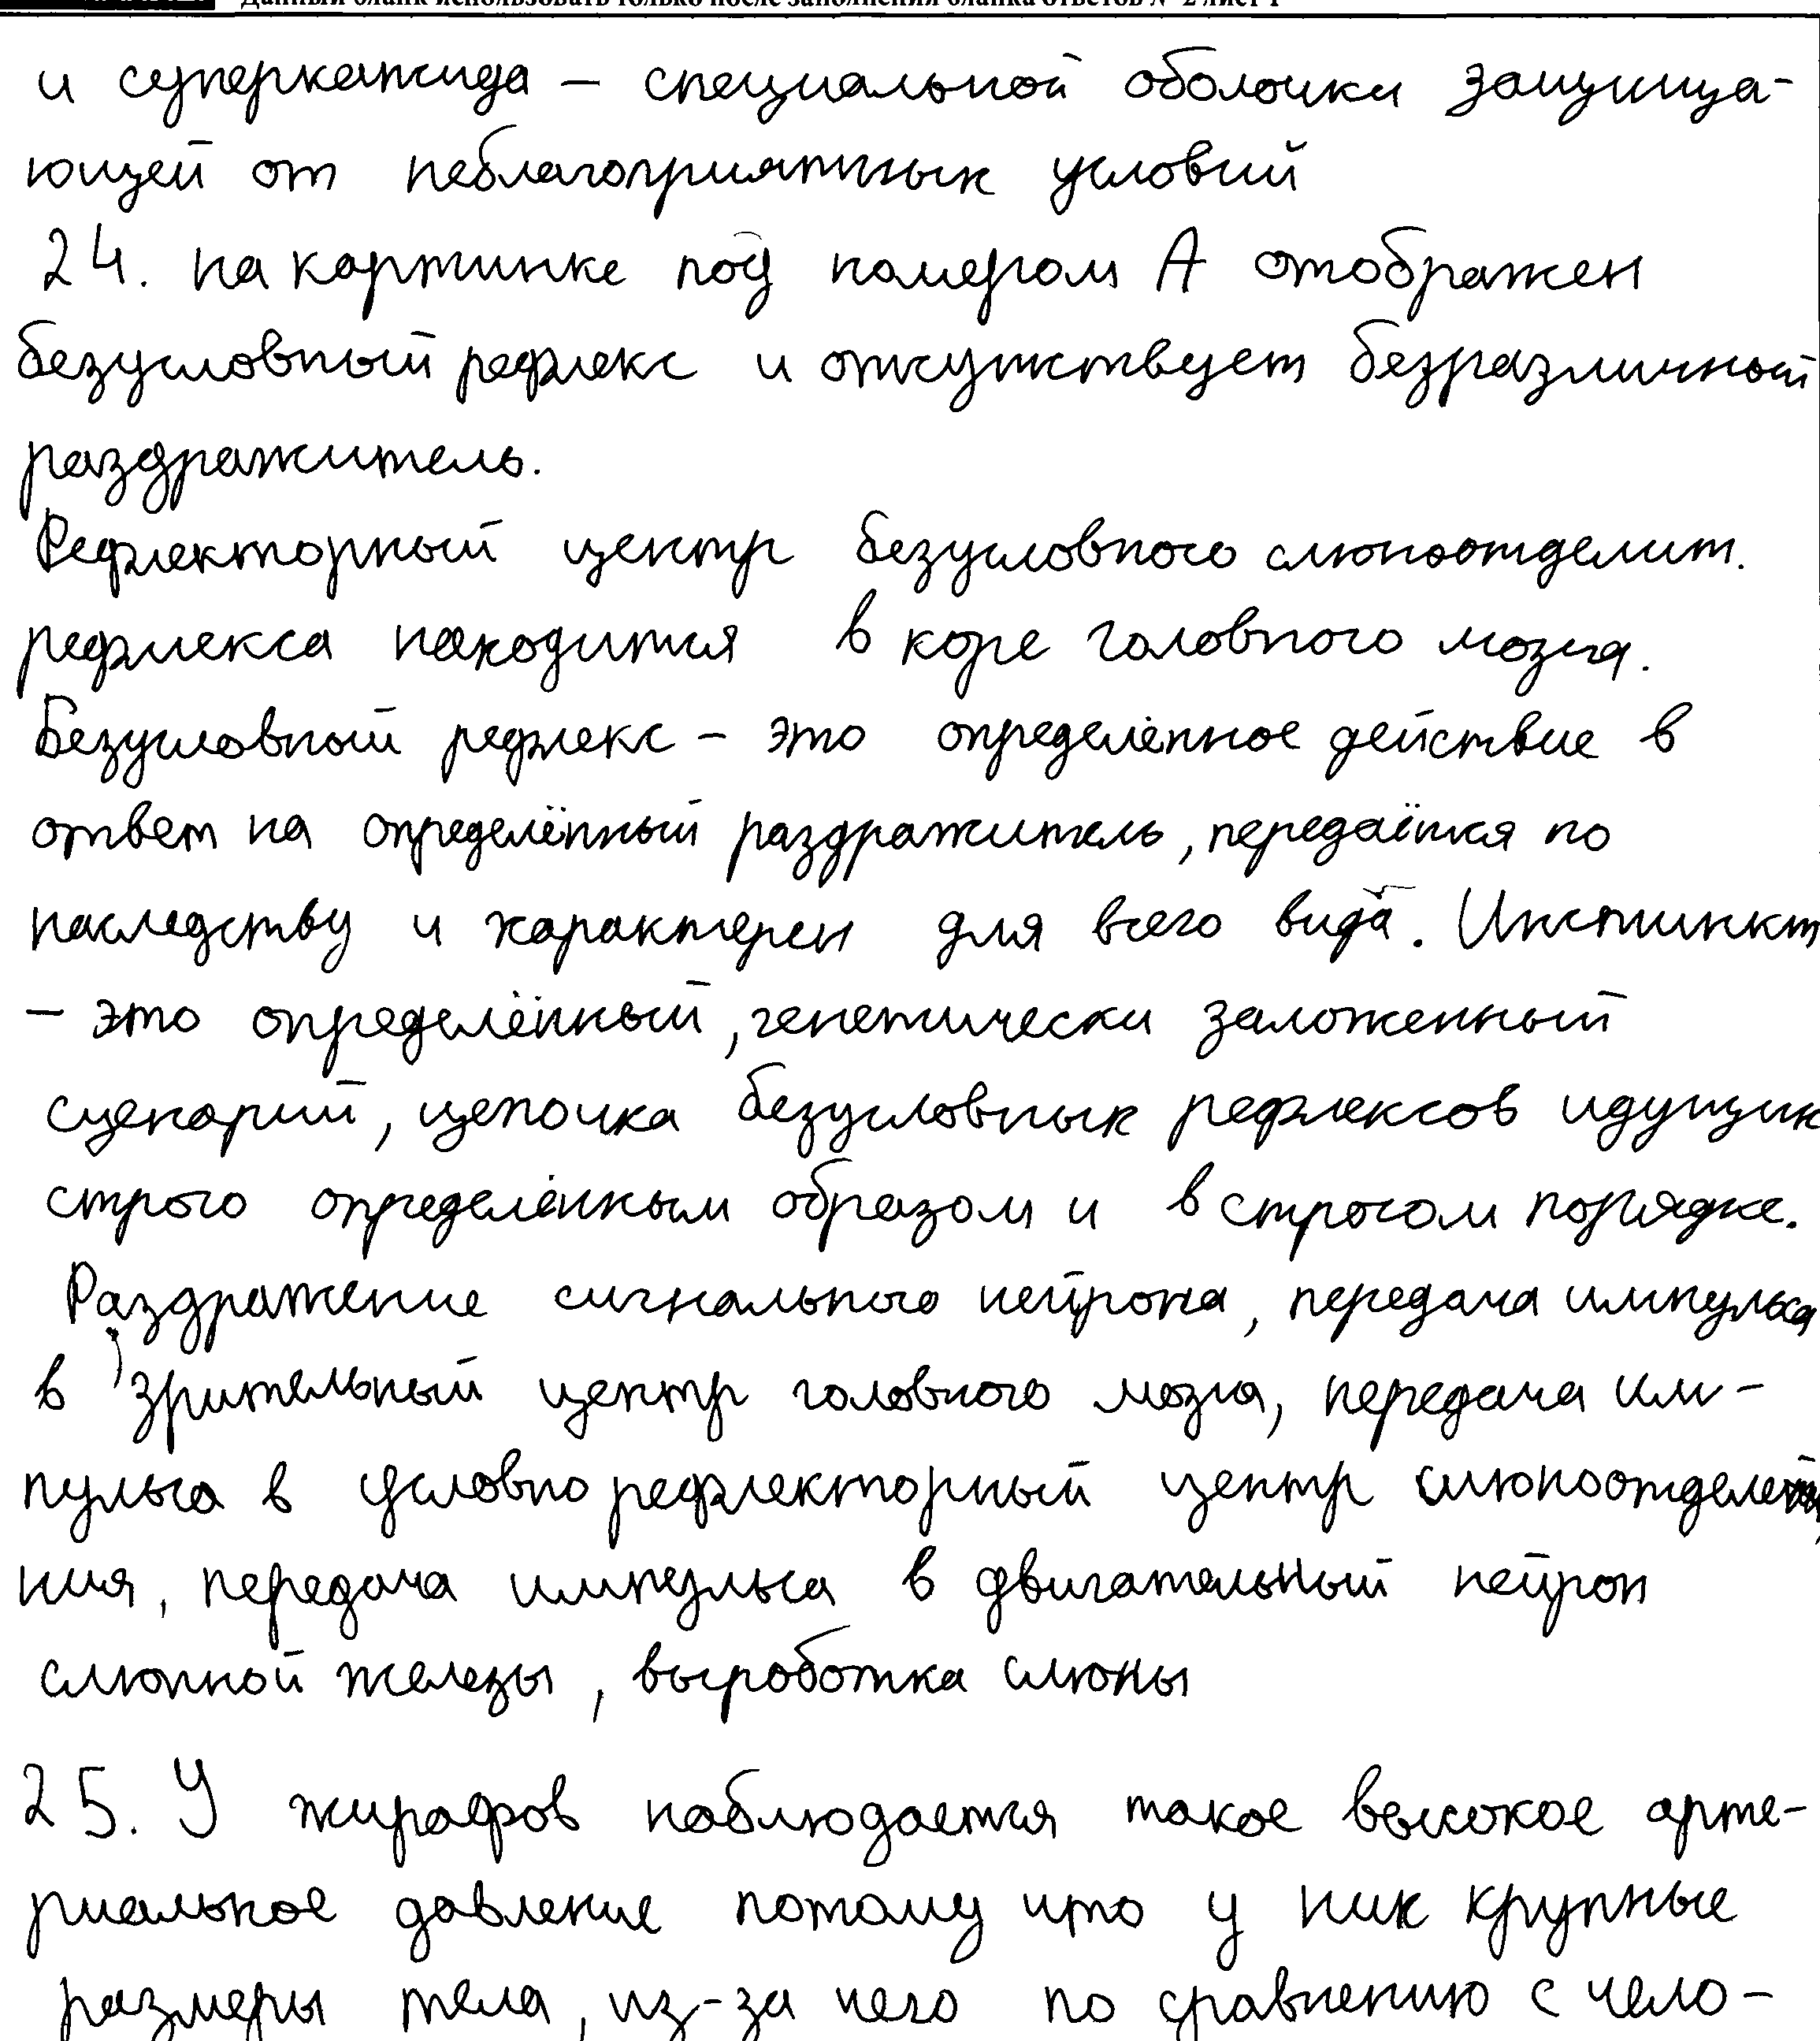 Данный бланк использовать только после заполнения бланка ответов № 2 лист 1
и суперкапсида – специальной оболочки защища-
ющей от неблагоприятных условий
24. на картинке под номером А отображен
безусловный рефлекс и отсутствует безразличный
раздражитель.
Рефлекторный центр безусловного слюноотделит.
рефлекса находится в коре головного мозга.
Безусловный рефлекс – это определённое действие в
ответ на определённый раздражитель, передаётся по
наследству и характерен для всего вида. Инстинкт
– это определённый, генетически заложенный
сценарий, цепочка безусловных рефлексов идущих
строго определённым образом и в строгом порядке.
Раздражение сигнального нейрона, передача импульса
в зрительный центр головного мозга, передача им-
пульса в условно рефлекторный центр слюноотделе
ния, передача импульса в двигательный нейрон
слюнной железы, выроботка слюны
25. У жирафов наблюдается такое высокое арте-
риальное давление потому что у них крупные
размеры тела, из-за чего по сравнению с чело-